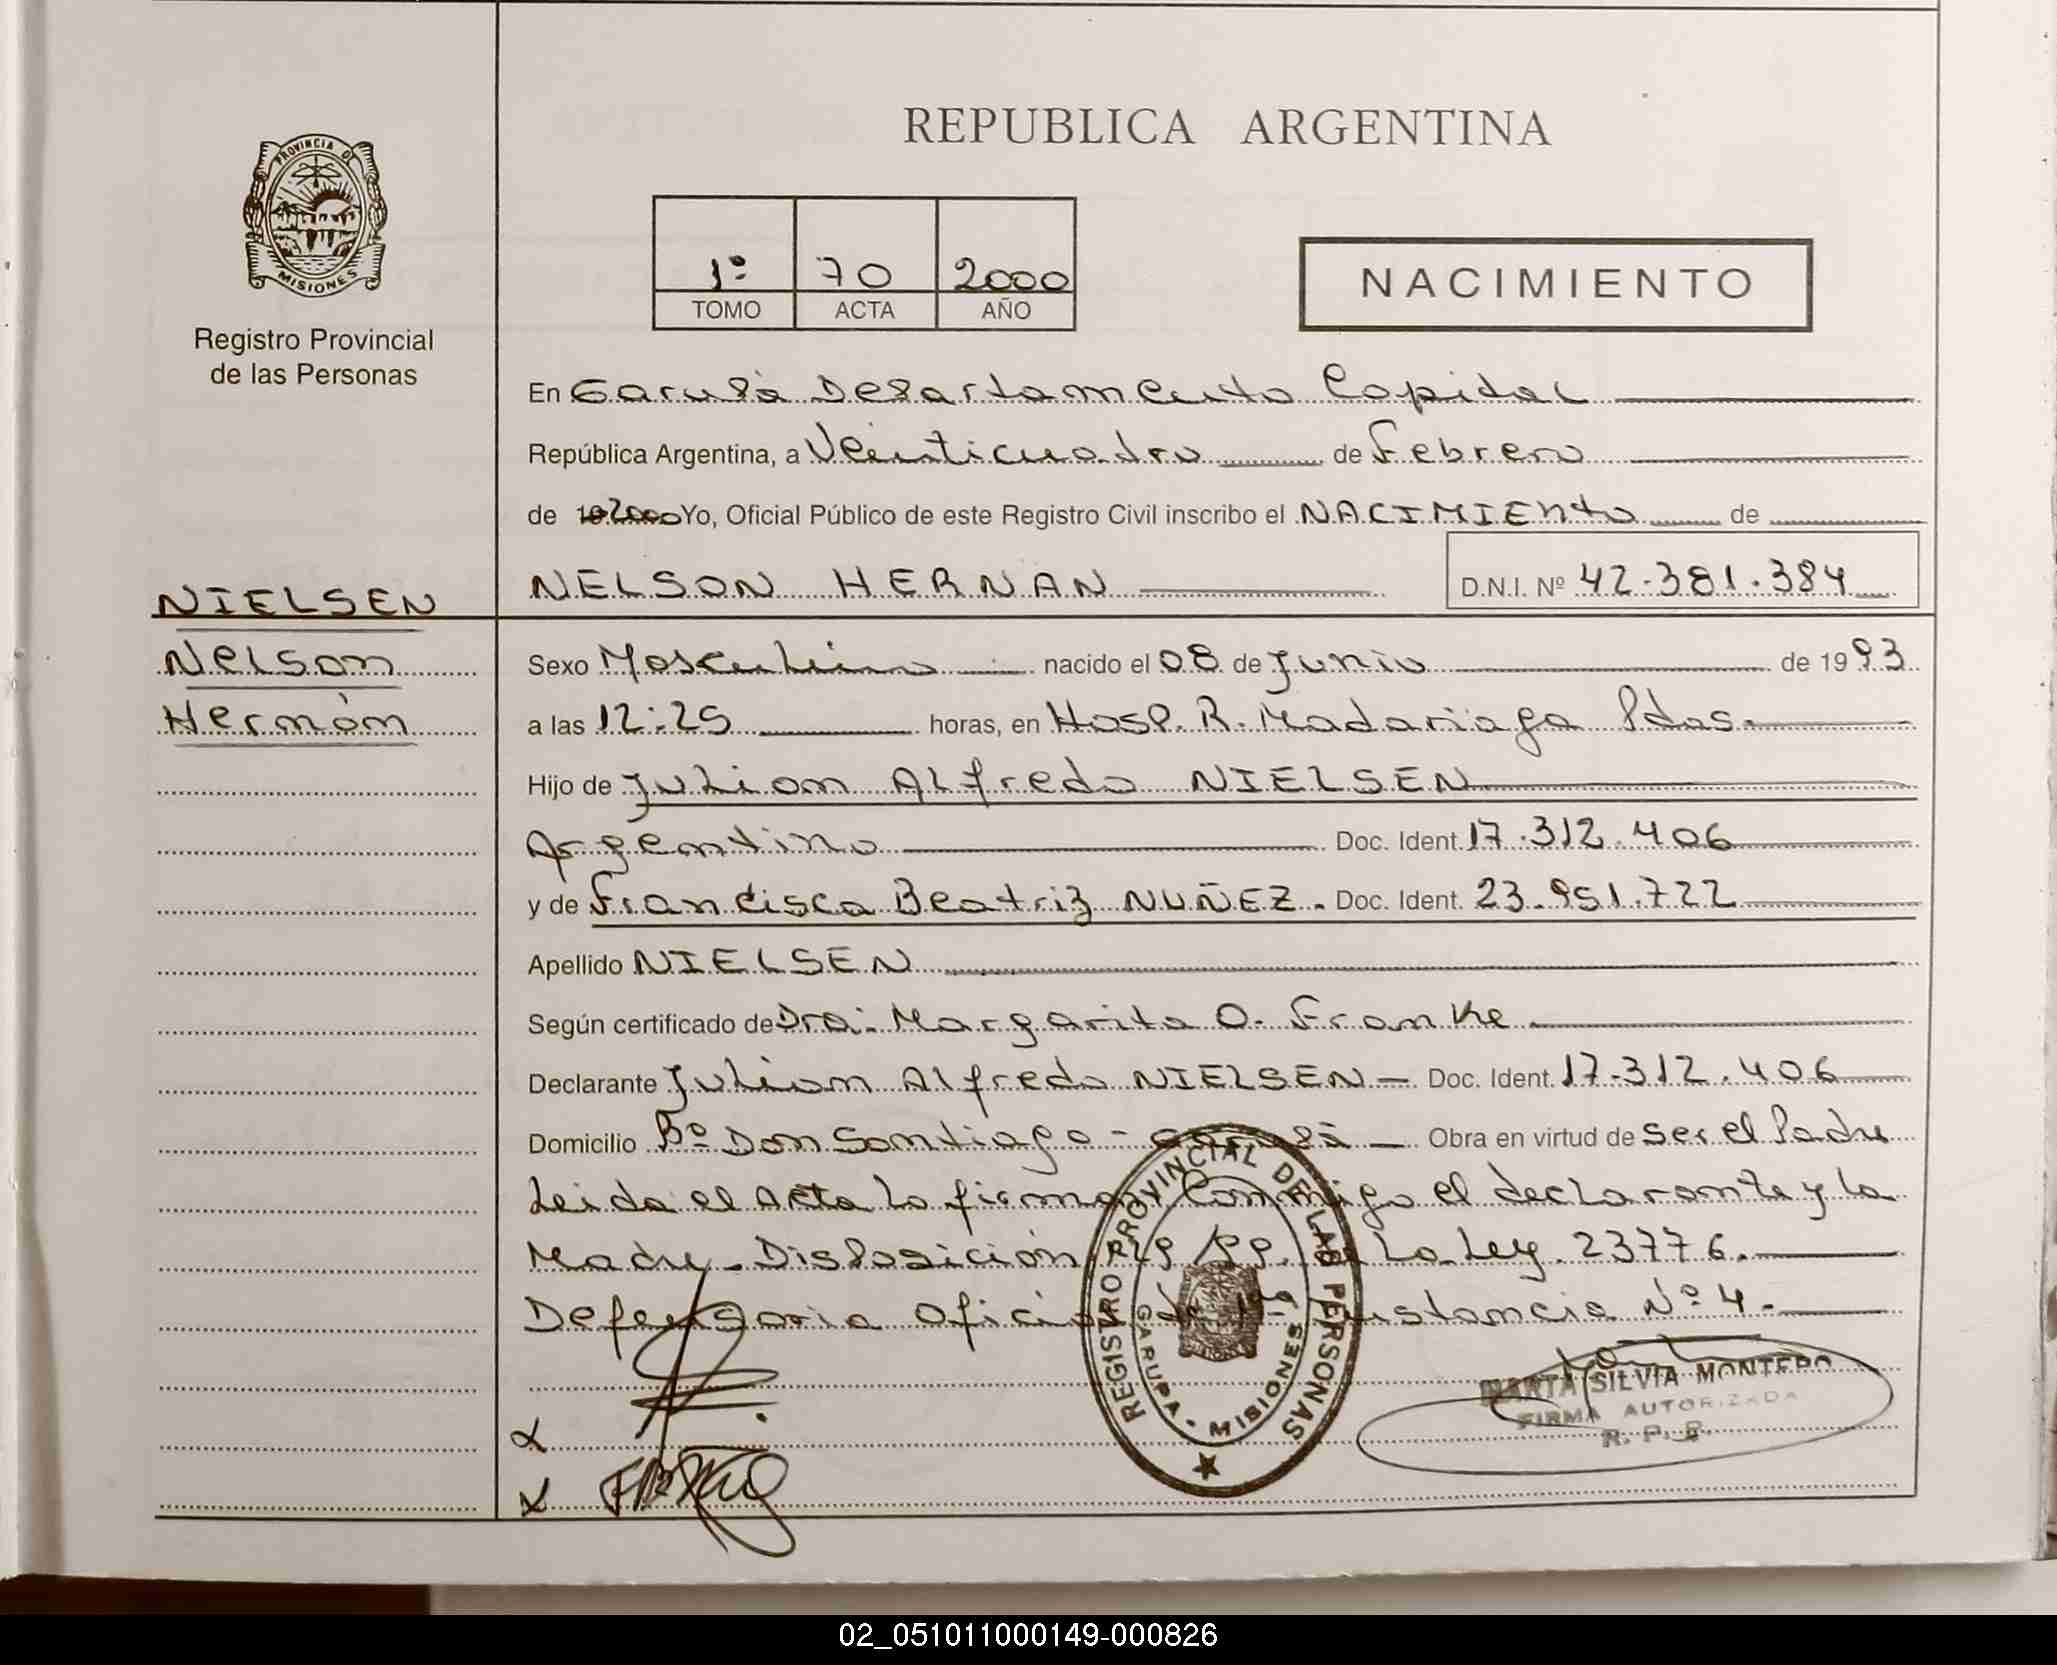 REPUBLICA ARGENTINA
PROVINCIA DE
MISIONES
Registro Provincial
de las Personas
1º 70 2000
TOMO ACTA AÑO
NACIMIENTO
En Garupá Departamento Capital
República Argentina, a Veinticuatro de Febrero
de 2000 Yo, Oficial Público de este Registro Civil inscribo el NACIMIENTO de
NELSON HERNAN D.N.I. Nº 42.381.384
NIELSEN
Nelson
Hernán
Sexo Masculino nacido el 08 de Junio de 1993
a las 12:25 horas, en Hosp. R. Madariaga Pdas.
Hijo de Julian Alfredo NIELSEN
Argentino Doc. Ident. 17.312.406
y de Francisca Beatriz NUÑEZ. Doc. Ident. 23.951.722
Apellido NIELSEN
Según certificado de Dra. Margarita O. Franke
Declarante Julian Alfredo NIELSEN - Doc. Ident. 17.312.406
Domicilio Bº Don Santiago - Garupá - Obra en virtud de ser el Padre
Leida el Acta la firman Conmigo el declarante y la
Madre. Disposición La Ley 23776.
Defensoria Oficial de 1ª Instancia Nº 4.
REGISTRO PROVINCIAL DE LAS PERSONAS
GARUPA - MISIONES
MARTA SILVIA MONTERO
FIRMA AUTORIZADA
R. P. P.
02_051011000149-000826